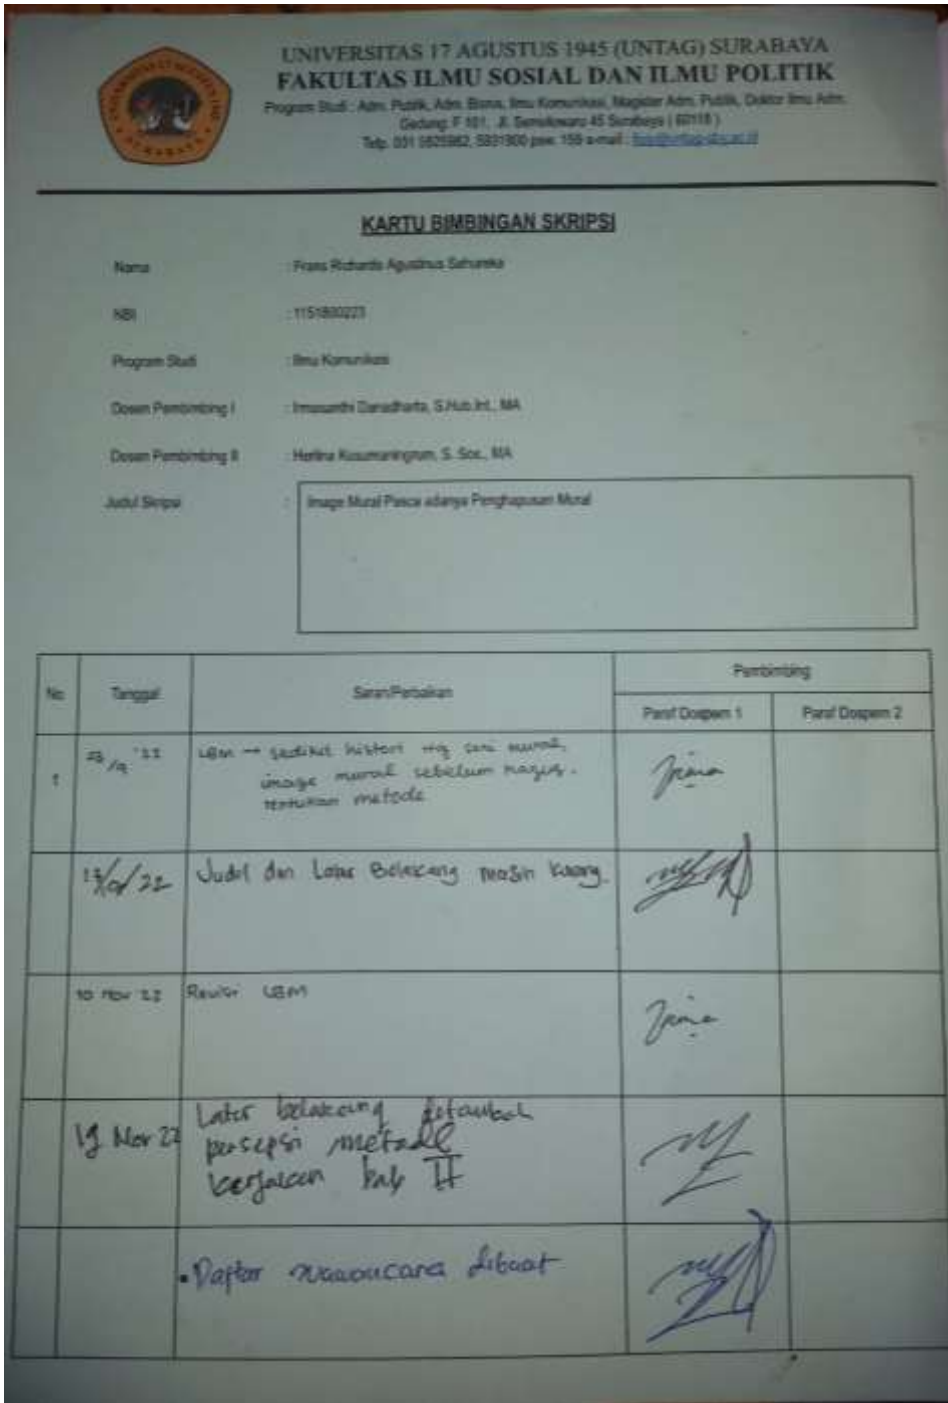 UNIVERSITAS 17 AGUSTUS 1945 (UNTAG) SURABAYA
FAKULTAS ILMU SOSIAL DAN ILMU POLITIK
Program Studi : Adm. Publik, Adm. Bisnis, Ilmu Komunikasi, Magister Adm. Publik, Doktor Ilmu Adm.
Gedung F 101, Jl. Semolowaru 45 Surabaya ( 60118 )
Telp. 031 5925982, 5931800 psw. 159 e-mail :
SURABAYA
KARTU BIMBINGAN SKRIPSI
Nama : Frans Richardo Agustinus Sahureka
NBI : 1151800223
Program Studi : Ilmu Komunikasi
Dosen Pembimbing I : Irmasanthi Danadharta, S.Hub.Int., MA
Dosen Pembimbing II : Herlina Kusumaningrum, S. Sos., MA
Judul Skripsi : Image Mural Pasca adanya Penghapusan Mural
No Tanggal Saran/Perbaikan Pembimbing
Paraf Dospem 1 Paraf Dospem 2
1 LBM → sedikit histori ttg seni mural,
image mural sebelum hapus.
tentukan metode
Judul dan Latar Belakang masih kurang.
10 Nov 22 Revisi LBM
Latar belakang ditambah
19 Nov 22 persepsi metode
kerjakan bab II
• Daftar wawancara dibuat